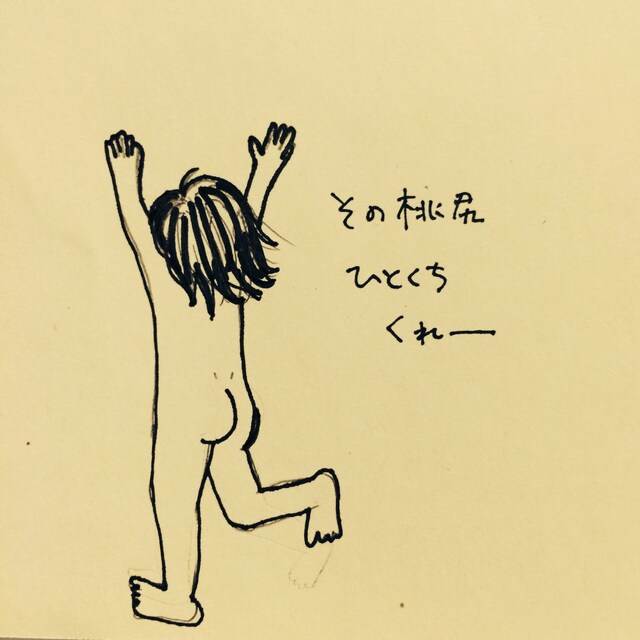 その桃尻
ひとくち
くれー